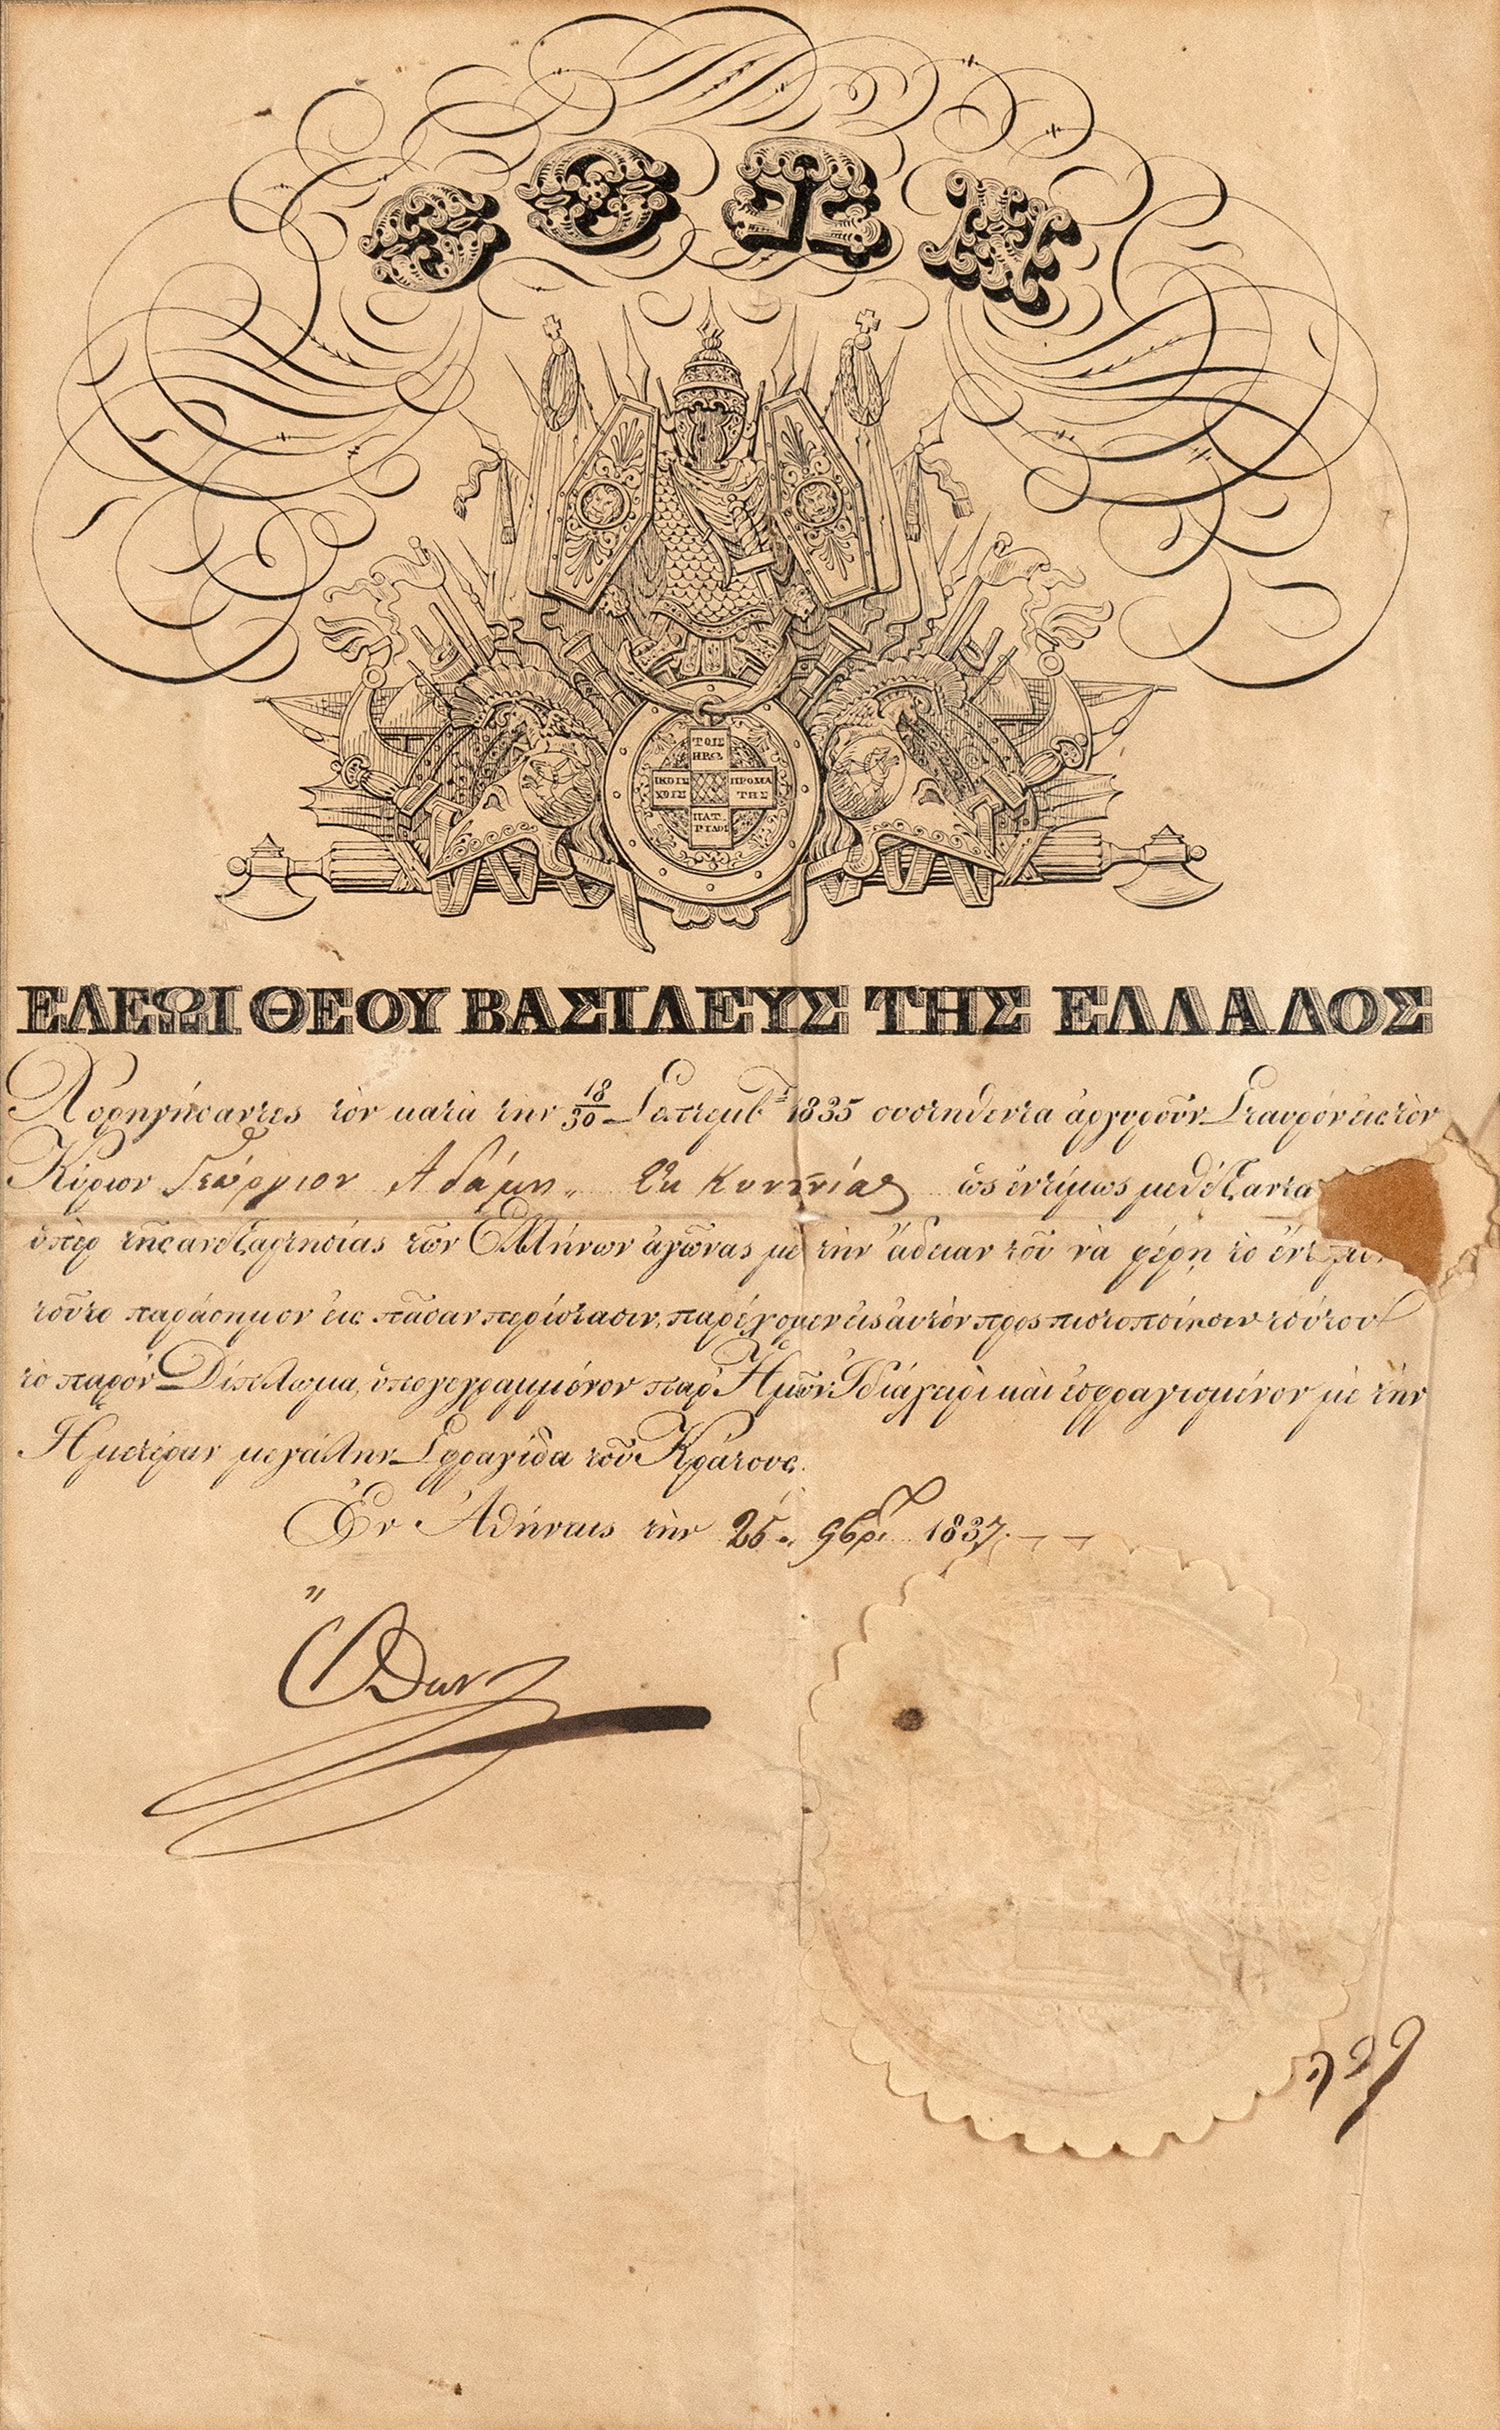 ΟΘΩΝ
ΤΟΙΣ
ΗΡΩ
ΙΚΟΙΣ ΠΡΟΜΑ
ΧΟΙΣ ΤΗΣ
ΠΑΤ
ΡΙΔΟΣ
ΕΛΕΩΙ ΘΕΟΥ ΒΑΣΙΛΕΥΣ ΤΗΣ ΕΛΛΑΔΟΣ
Χορηγήσαντες τὸν κατὰ τὴν 18/30 Σεπτεμβ. 1835 συστηθέντα ἀργυροῦν Σταυρὸν εἰς τὸν
Κύριον Γεώργιον Αδάμη ὡς ἐντίμως μεθέξαντα
ὑπὲρ τῆς ανεξαρτησίας τῶν Ἑλλήνων ἀγῶνας με τὴν ἄδειαν τοῦ νὰ φέρῃ τὸ
τοῦτο παράσημον εἰς πᾶσαν περίστασιν, παρέχομεν εἰς ἀυτὸν πρὸς πιστοποίησιν τούτου
τὸ παρὸν Δίπλωμα, ὑπογεγραμμένον παρ' Ἡμῶν Ἰδιαχείρὶ καὶ ἐσφραγισμένον μὲ τὴν
Ἡμετέραν μεγάλην Σφραγίδα τοῦ Κράτους.
Ἐν Ἀθήναις τὴν 25 9βρί 1837.
Οθων